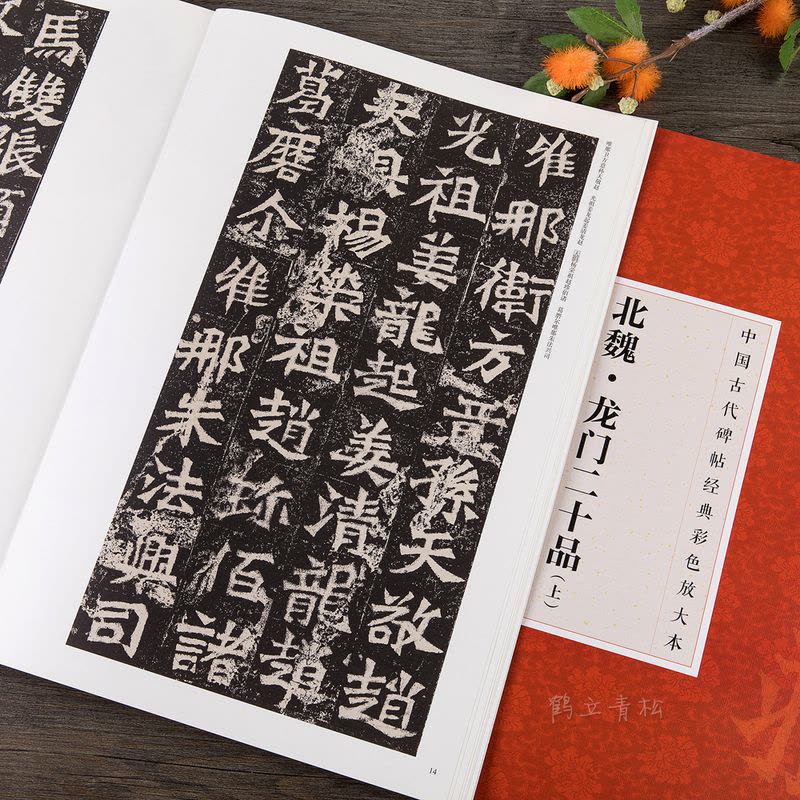 隹那衛方意孫天敬趙
光祖姜龍起姜清龍趙
具楊榮祖趙珎佰諸
葛磨尒隹那朱法興司
馬雙張
14
中国古代碑帖经典彩色放大本
北魏·龙门二十品(上)
鹤立青松